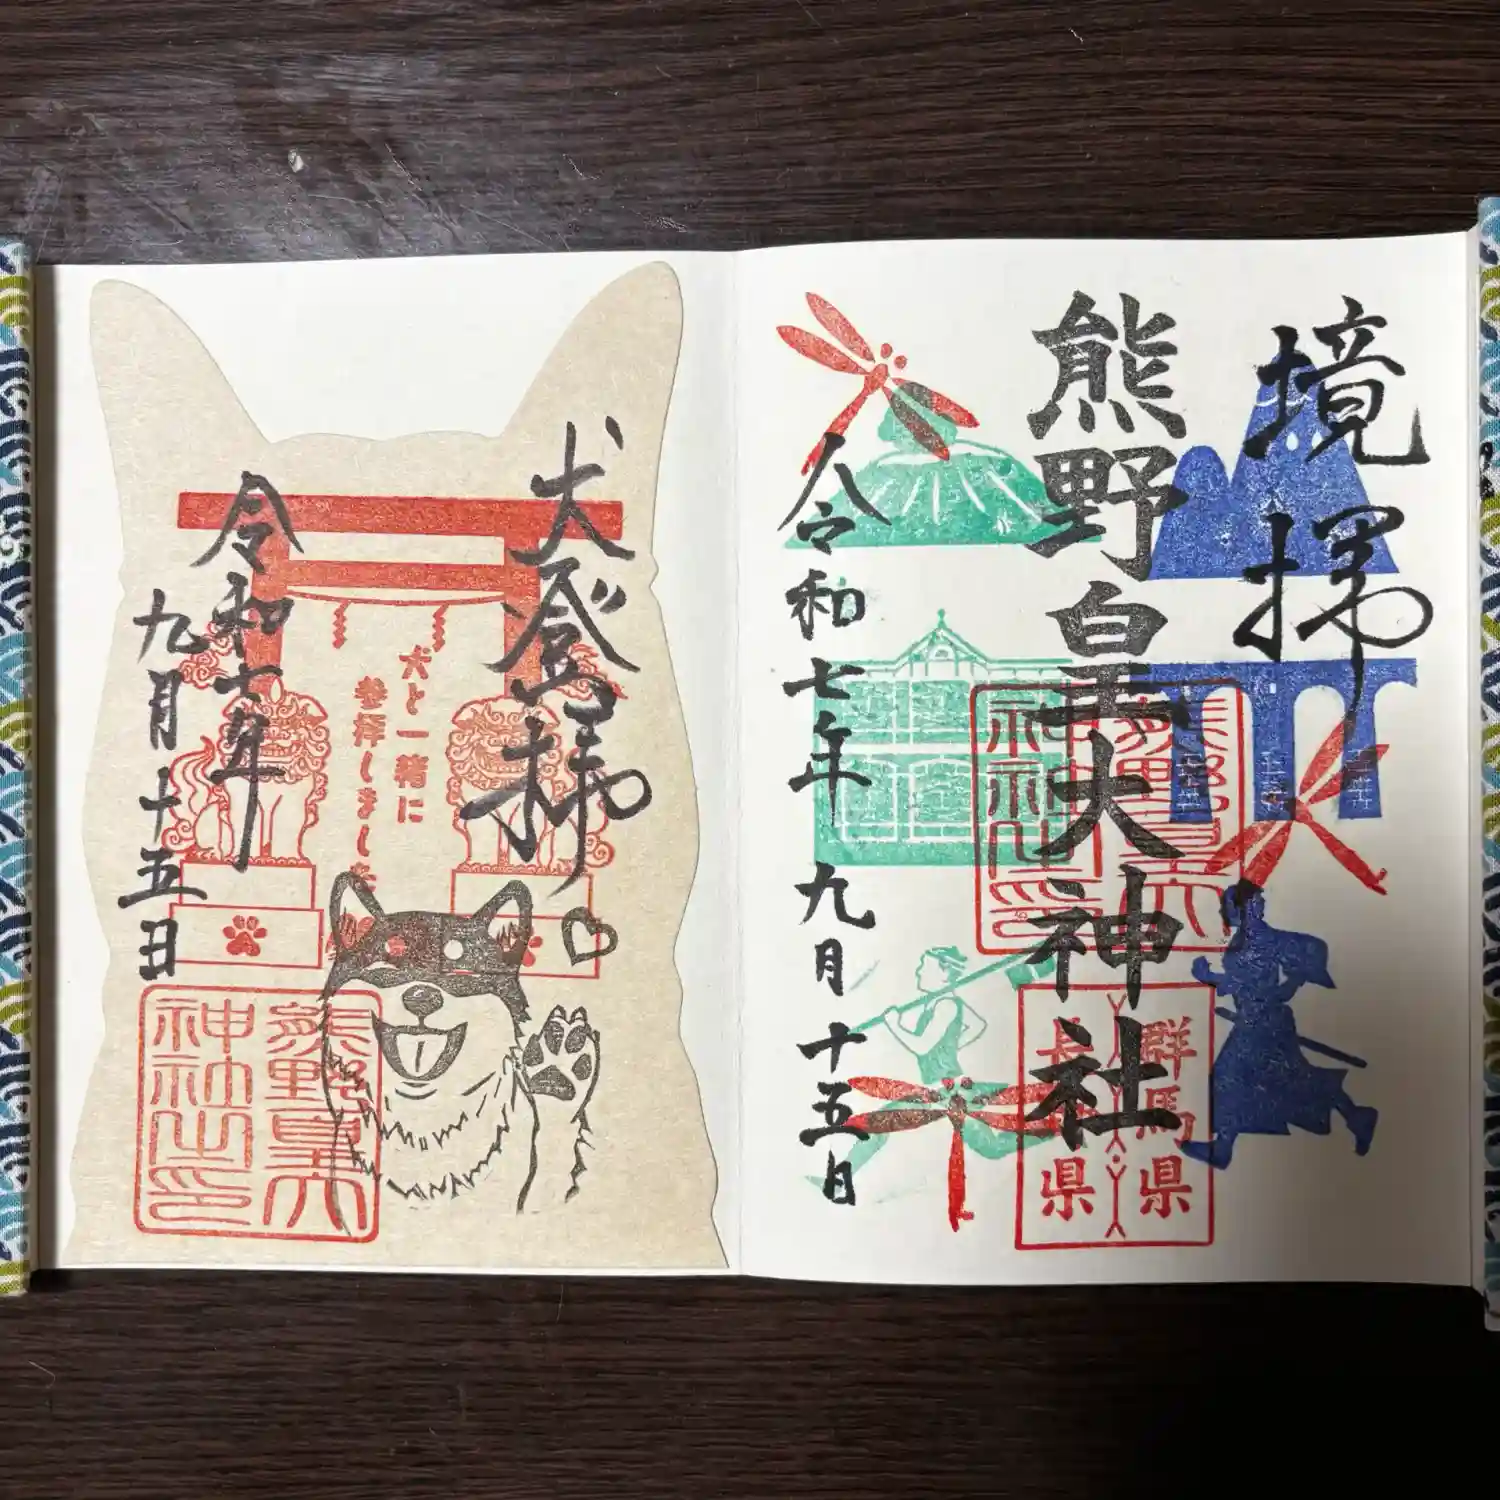 境拝
熊野皇大神社
令和七年九月十五日
熊野皇大
神社之印
群馬県
長野県
犬登拝
犬と一緒に
参拝しました
令和七年
九月十五日
熊野皇大
神社之印